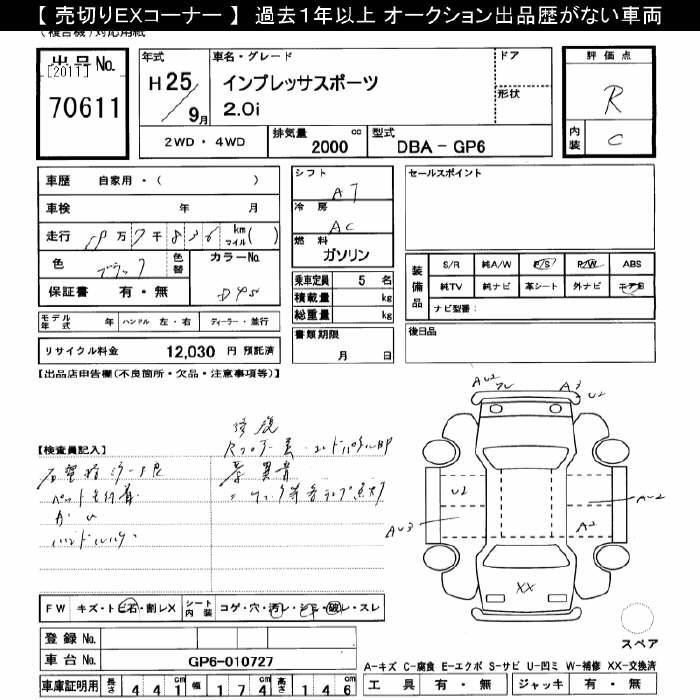 【 売切りEXコーナー 】 過去1年以上 オークション出品歴がない車両
(複合機)対応用紙
出品No.
[2011]
70611
年式
H 25
9月
車名・グレード
インプレッサスポーツ
2.0i
ドア
形状
評価点
R
内装
C
2WD ・ 4WD
排気量 2000 cc
型式 DBA - GP6
車歴 自家用・( )
車検 年 月
走行 万 7 千 8 3 6 km マイル ( )
色 ブラック
色替
カラーNo.
D4S
保証書 有・無
シフト
AT
冷房
AC
燃料
ガソリン
乗車定員 5 名
積載量 kg
総重量 kg
書類期限
月 日
セールスポイント
装備品
S/R 純A/W P/S P/W ABS
純TV 純ナビ 革シート 外ナビ エアB
ナビ型番:
後日品
モデル年式 年 ハンドル 左・右 ディーラー・並行
リサイクル料金 12,030 円 預託済
【出品店申告欄(不良箇所・欠品・注意事項等)】
【検査員記入】
修復
異音
ハンドル
AU2
A2
U2
U2
AU2
AU3
A2
XX
FW キズ・トビ石・割レX
シート内装 コゲ・穴・汚レ・シミ・破レ・スレ
登録No.
車台No. GP6-010727
車庫証明用 長さ 4 4 1 cm 幅 1 7 4 cm 高さ 1 4 6 cm
スペア
A-キズ C-腐食 E-エクボ S-サビ U-凹ミ W-補修 XX-交換済
工具 有・無 ジャッキ 有・無